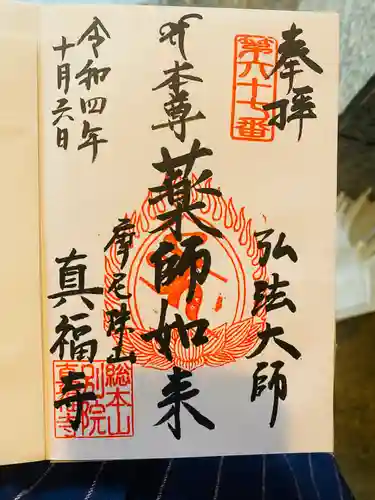 奉拝
第六十七番
弘法大師
本尊
薬師如来
摩尼珠山
真福寺
令和四年
十月六日
総本山
別院
真福寺